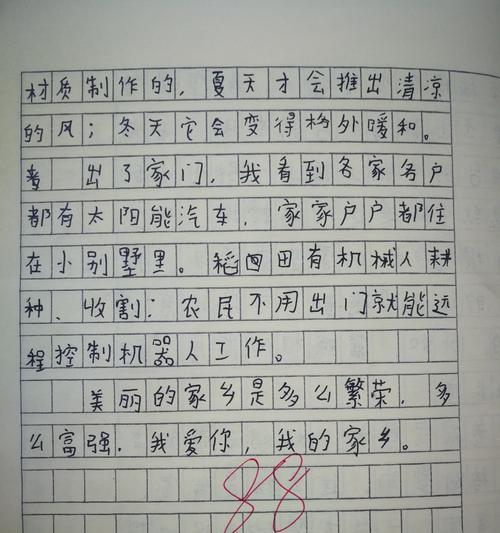 材质制作的，夏天才会推出清凉
的风；冬天它会变得格外暖和。
出了家门，我看到各家各户
都有太阳能汽车，家家户户都住
在小别墅里。稻田田有机械人耕
种、收割；农民不用出门就能远
程控制机器人工作。
美丽的家乡是多么繁荣，多
么富强，我爱你，我的家乡。
88